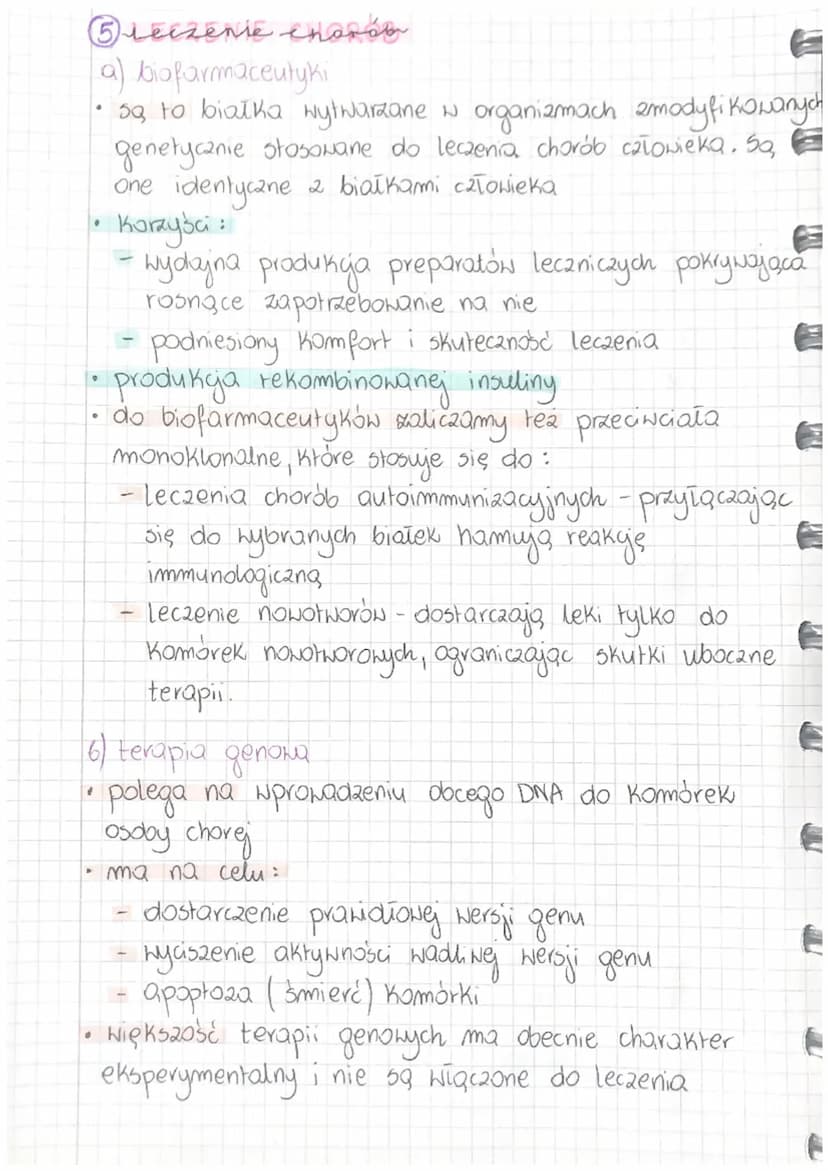 ⑤ Leczenie chorób
a) biofarmaceutyki
• są to białka wytwarzane w organizmach zmodyfikowanych
genetycznie stosowane do leczenia chorób człowieka. Są
one identyczne z białkami człowieka
• Korzyści:
- wydajna produkcja preparatów leczniczych pokrywająca
rosnące zapotrzebowanie na nie
- podniesiony komfort i skuteczność leczenia
• produkcja rekombinowanej insuliny
• do biofarmaceutyków zaliczamy też przeciwciała
monoklonalne, które stosuje się do:
- leczenia chorób autoimmunizacyjnych - przyłączając
się do wybranych białek hamują reakcję
immunologiczną
- leczenie nowotworów - dostarczają leki tylko do
komórek nowotworowych, ograniczając skutki uboczne
terapii.
b) terapia genowa
• polega na wprowadzeniu obcego DNA do komórek
osoby chorej
• ma na celu:
- dostarczenie prawidłowej wersji genu
- wyciszenie aktywności wadliwej wersji genu
- apoptoza (śmierć) komórki
• większość terapii genowych ma obecnie charakter
eksperymentalny i nie są włączone do leczenia